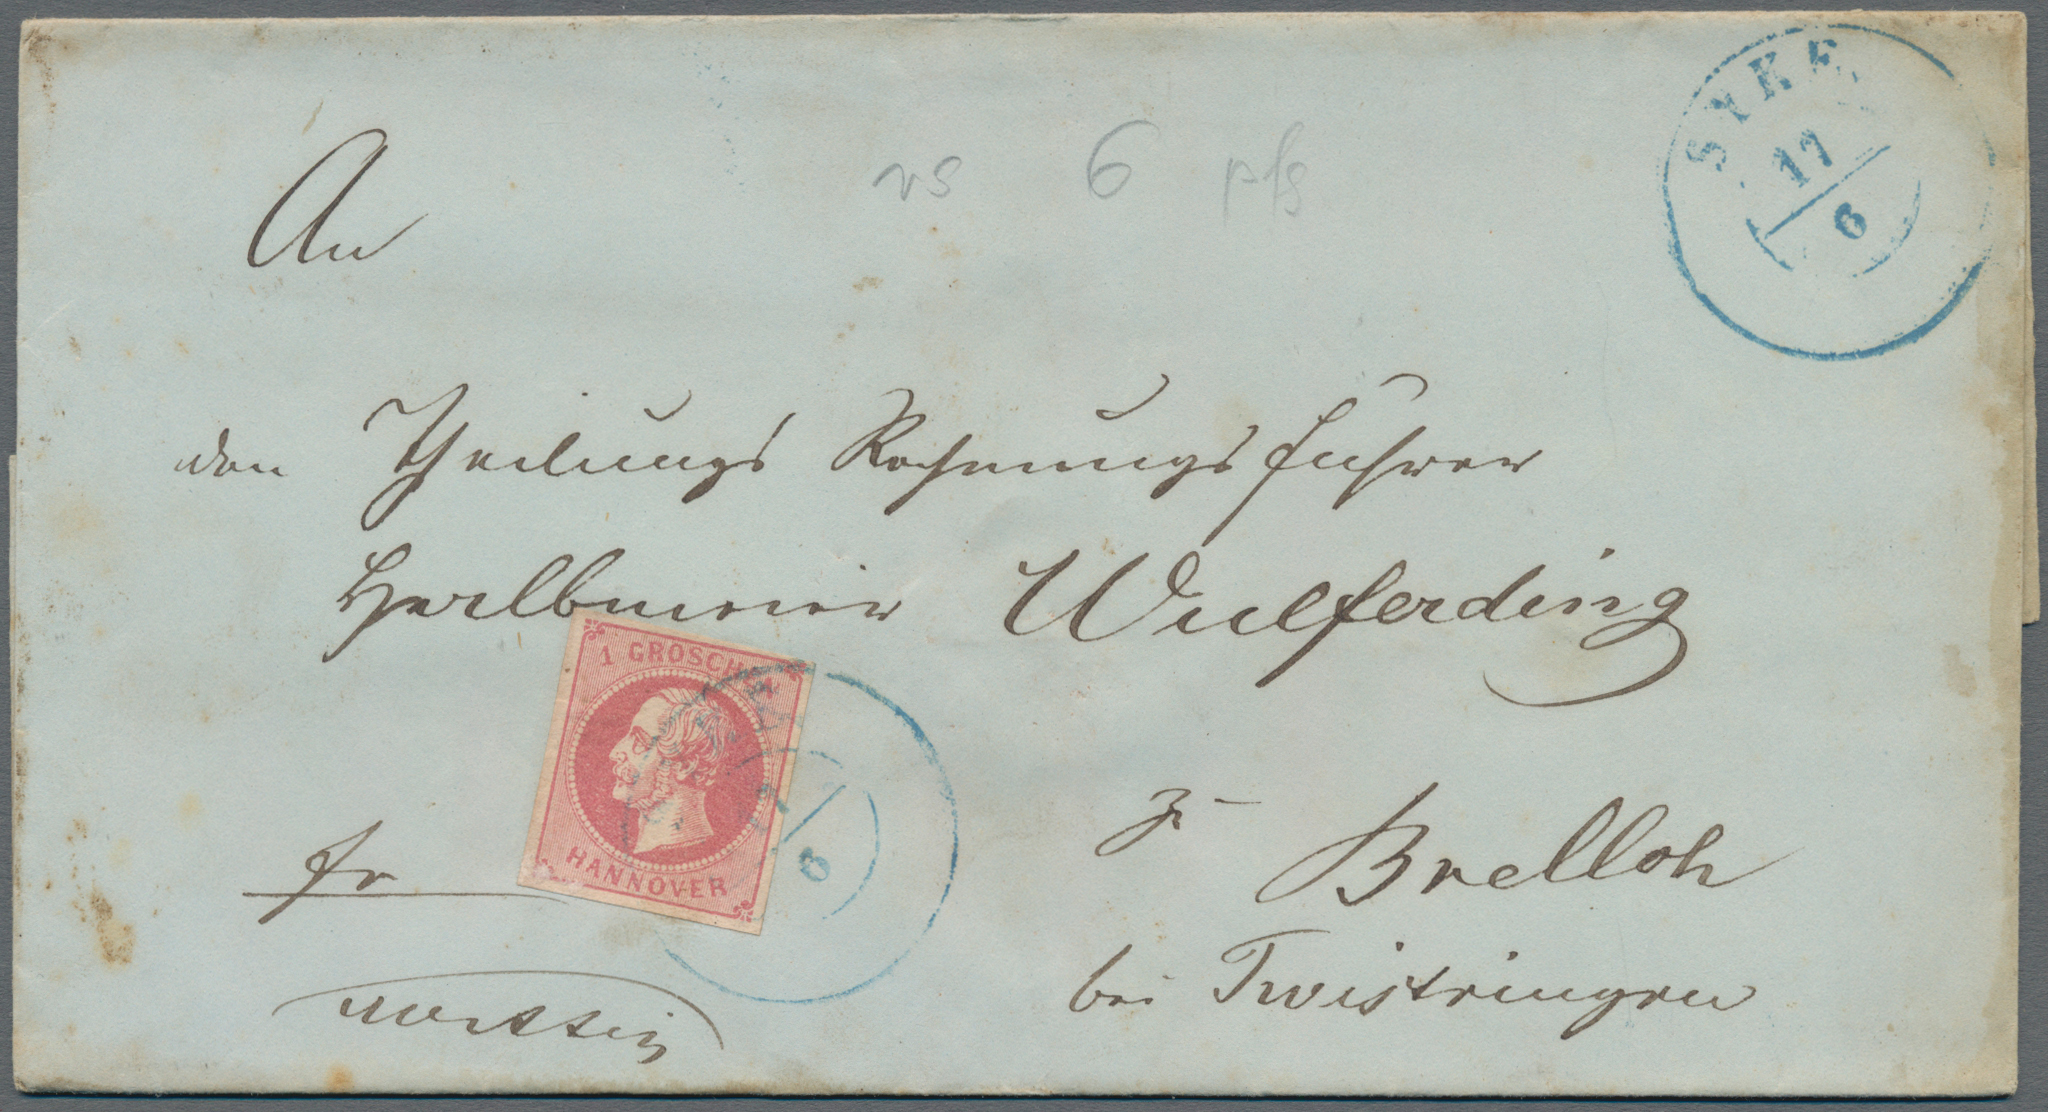 SYKE
17
6
rs 6 pfg
An
den Theilungs Rechnungsführer
Halbmeier Wulferding
1 GROSCHEN
HANNOVER
6
zu
Brelloh
fr
bei Twistringen